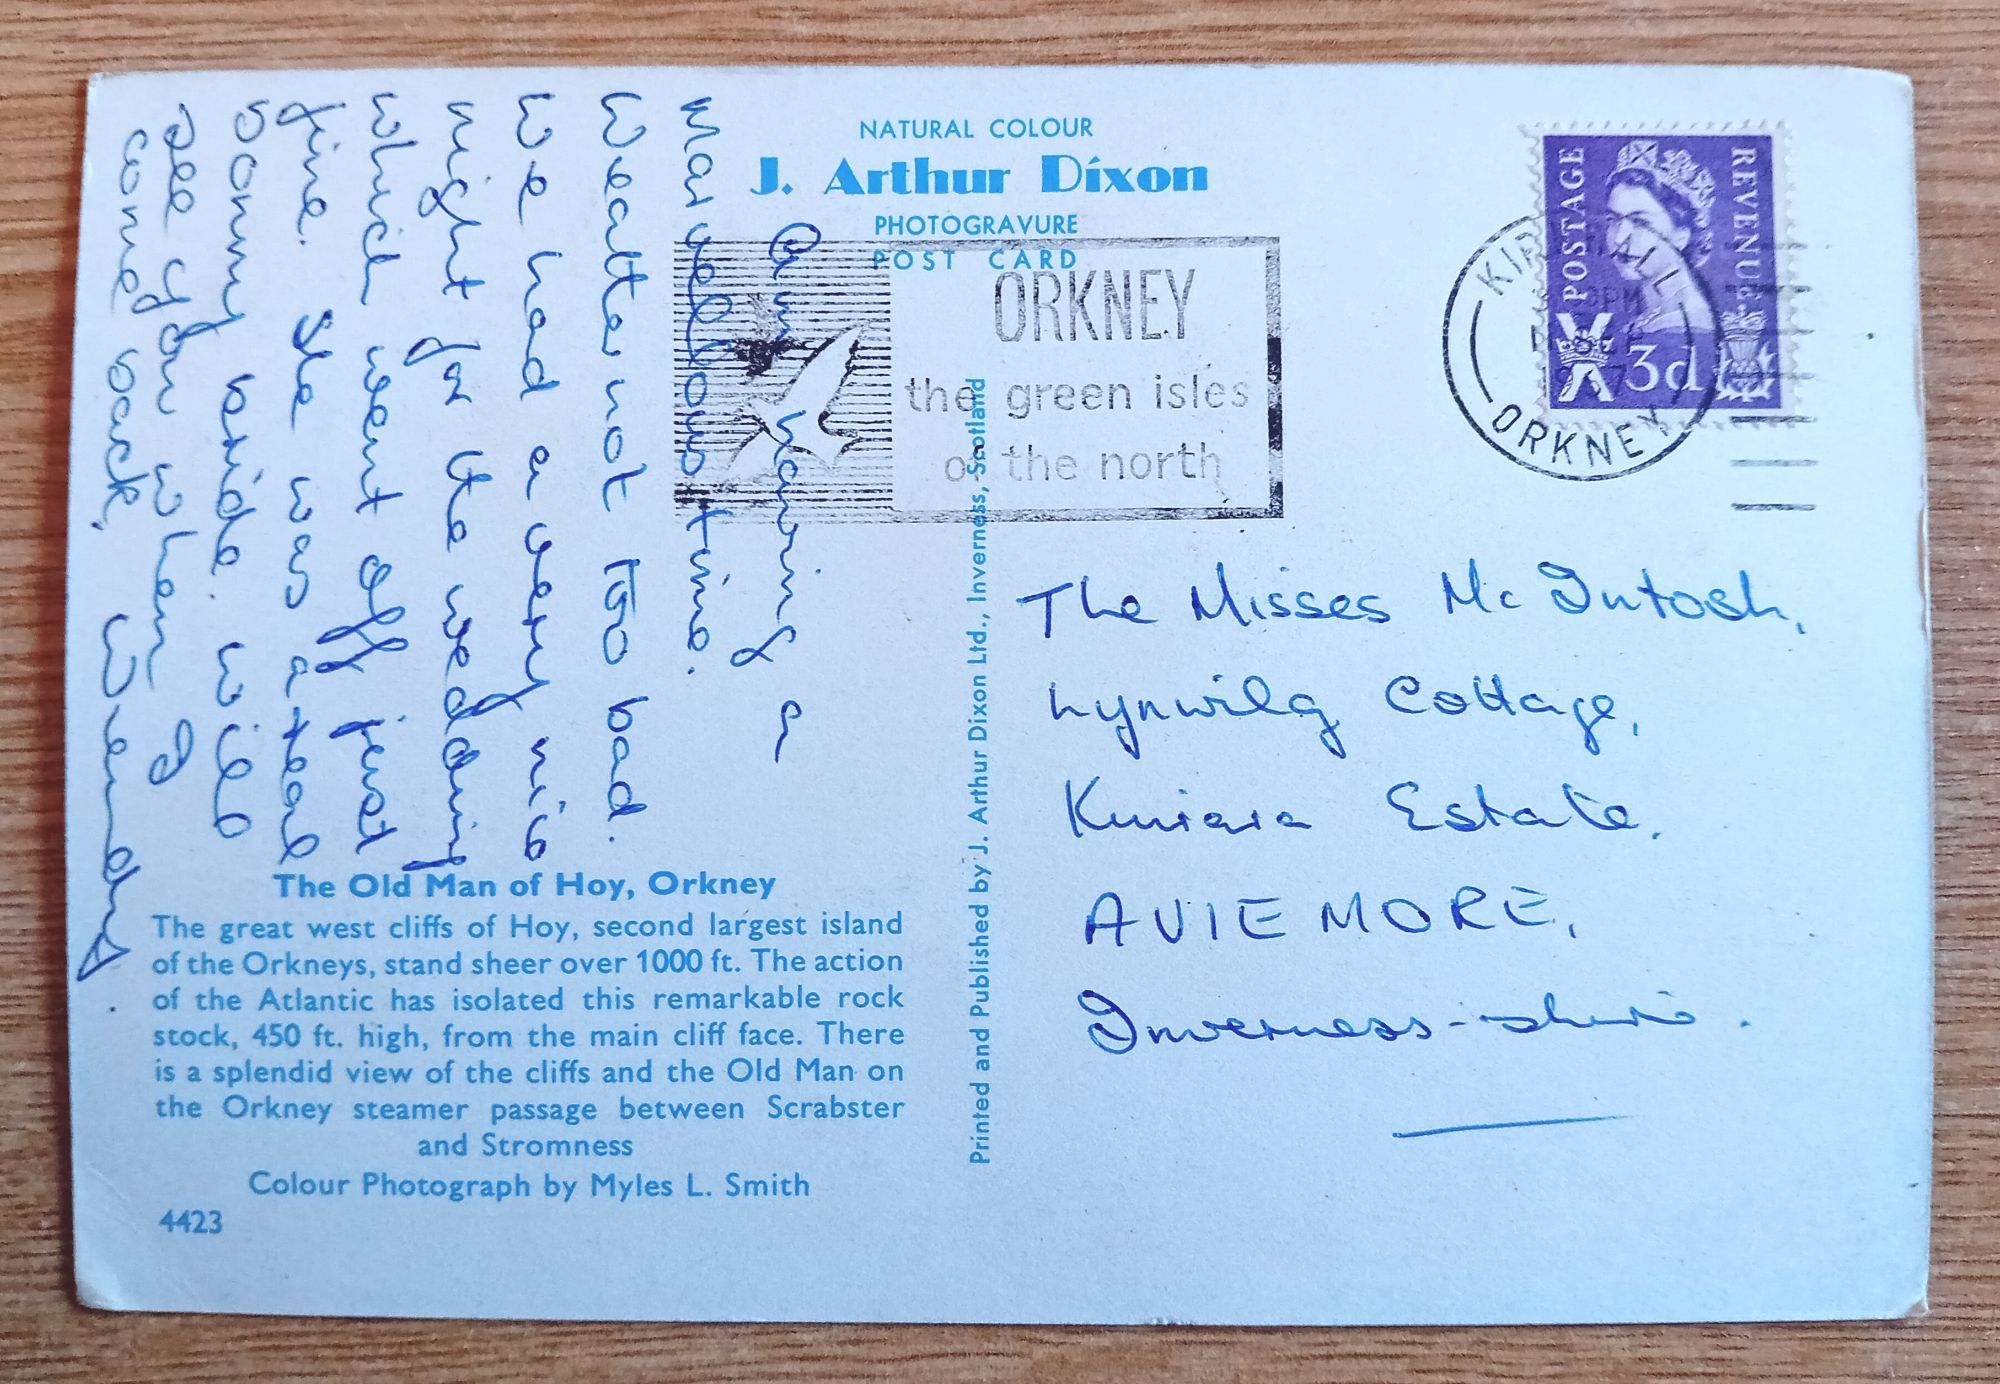 NATURAL COLOUR
J. Arthur Dixon
PHOTOGRAVURE
POST CARD
Am having a
marvellous time.
Weather not too bad.
We had a very nice
night for the wedding
which went off just
fine. She was a real
bonny bride. Will
see you when I
come back. Wendy.
The Old Man of Hoy, Orkney
The great west cliffs of Hoy, second largest island
of the Orkneys, stand sheer over 1000 ft. The action
of the Atlantic has isolated this remarkable rock
stock, 450 ft. high, from the main cliff face. There
is a splendid view of the cliffs and the Old Man on
the Orkney steamer passage between Scrabster
and Stromness
Colour Photograph by Myles L. Smith
4423
Printed and Published by J. Arthur Dixon Ltd., Inverness, Scotland
ORKNEY
the green isles
of the north
KIRKWALL
ORKNEY
POSTAGE
REVENUE
3d
The Misses McIntosh,
Lynwilg Cottage,
Kinrara Estate.
AVIEMORE,
Inverness-shire.